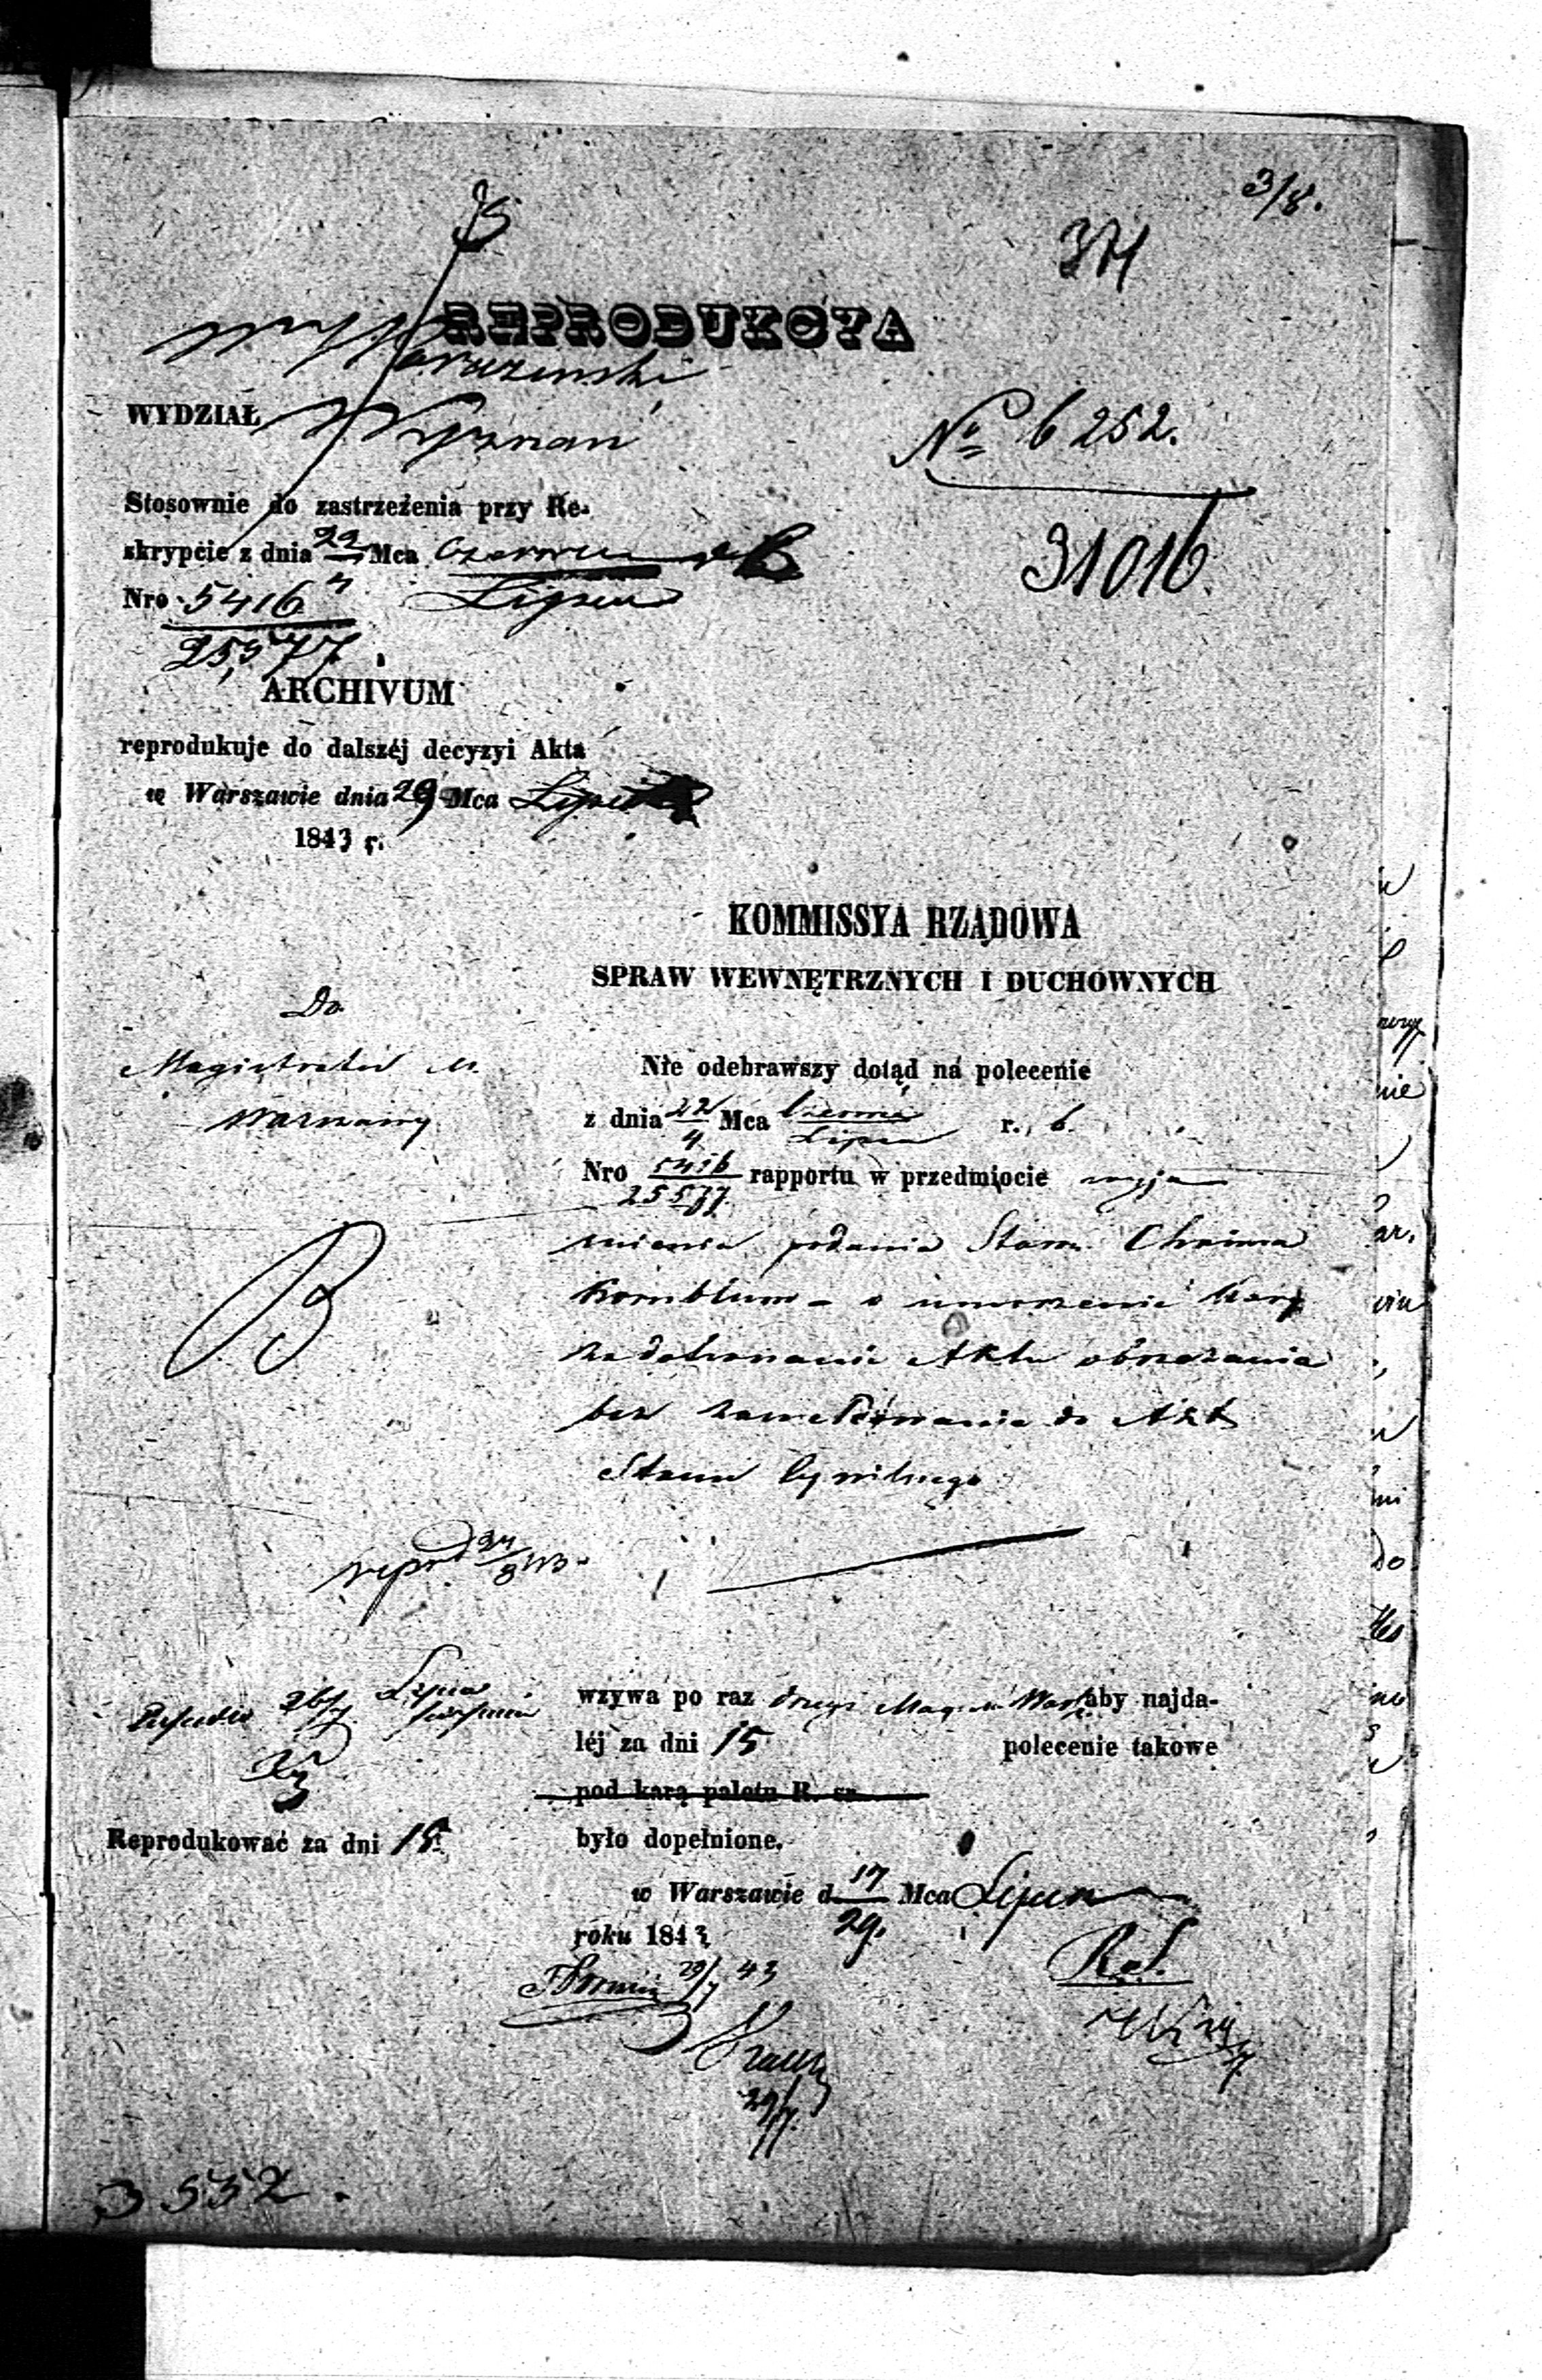 3/8.
371
REPRODUKCYA
WYDZIAŁ Wyznań
No 6252.
31016.
Stosownie do zastrzeżenia przy Re-
skrypcie z dnia 22 Mca Czerwca
Nro 5416 4 Lipca
25,577
ARCHIVUM
reprodukuje do dalszéj decyzyi Akta
w Warszawie dnia 29 Mca Lipca
1843 r.
KOMMISSYA RZĄDOWA
SPRAW WEWNĘTRZNYCH I DUCHOWNYCH
Do
Magistratu M.
Warszawy
Nie odebrawszy dotąd na polecenie
z dnia 22/4 Mca Czerwca/Lipca r. b.
Nro 5416/25577 rapportu w przedmiocie wyja
śnienia podania Starn. Chaima
Kornblum - o umorzenie kary
za dokonanie Aktu obrzezania
bez zameldowania do Akt
Stanu Cywilnego
wzywa po raz drugi Mag. M. Warsz. aby najda-
léj za dni 15 polecenie takowe
pod karą paletu R. sr.
było dopełnione.
Reprodukować za dni 15
w Warszawie d. 17/29. Mca Lipca
roku 1843
29/7 43
29/7.
3532.